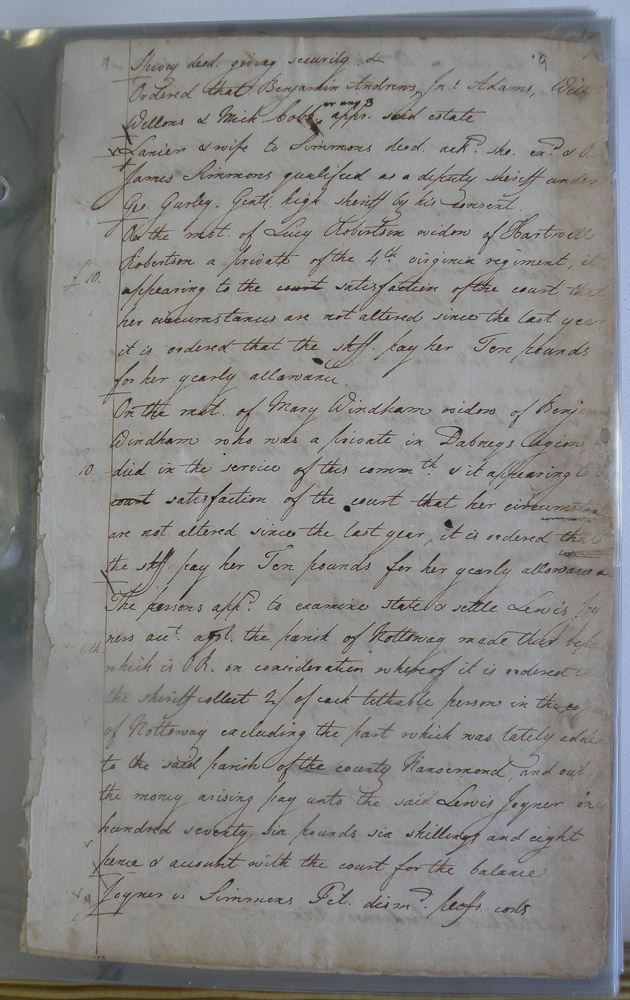 9
Spivey decd. giving security &c
Ordered that Benjamin Andrews, Jno. Adams, Will
or any 3
Wellons & Mich. Cobb, appr. said estate
Lanier & wife to Simmons deed ackd. she. exd. & O.
James Simmons qualified as a deputy sheriff under
Geo. Gurley. Gentl. high sheriff by his consent
On the mot. of Lucy Robertson widow of Hartwell
Robertson a private of the 4th virginia regiment, it
£10.
appearing to the court satisfaction of the court that
her circumstances are not altered since the last year
it is ordered that the shff. pay her Ten pounds
for her yearly allowance.
On the mot. of Mary Windham widow of Benjamin
Windham who was a private in Dabneys legion
10.
died in the service of this commth. & it appearing
court satisfaction of the court that her circumstan
are not altered since the last year, it is ordered that
the shff. pay her Ten pounds for her yearly allowance
The persons appd. to examine state & settle Lewis Joy
ners acct. agst. the parish of Nottoway made their repo
which is OR. on consideration whereof it is ordered
the sheriff collect 2/ of each tithable person in the co
of Nottoway excluding the part which was lately added
to the said parish of the county Nansemond, and out
the money arising pay unto the said Lewis Joyner one
hundred seventy six pounds six shillings and eight
pence & account with the court for the balance
Joyner vs Simmons Pet. dismd. pltffs. costs